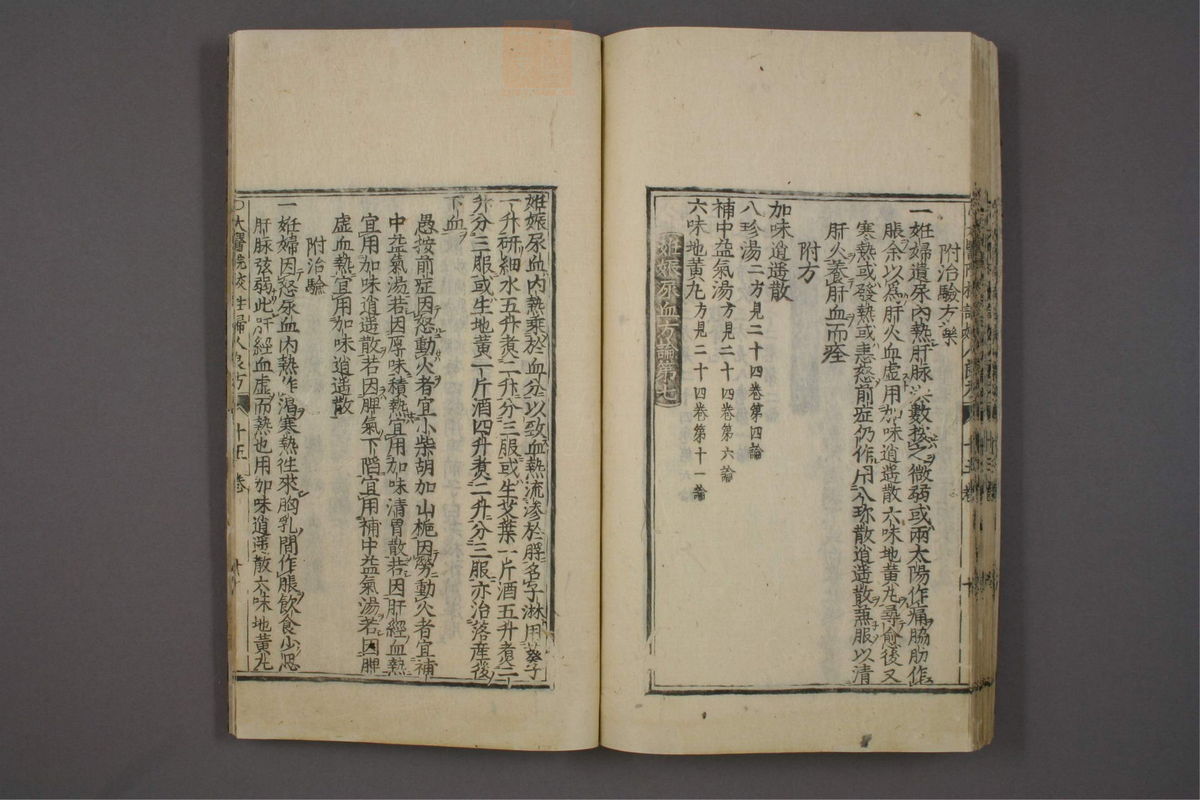 附治驗方藥
一妊婦遺尿内熱肝脉洪數按之微弱或兩太陽作痛脇肋作
脹余以爲肝火血虛用加味逍遥散六味地黄丸尋愈後又
寒熱或發熱或恚怒前症仍作用八珍散逍遥散兼服以清
肝火養肝血而痊
附方
加味逍遥散
八珍湯二方見二十四卷第四論
補中益氣湯方見二十四卷第六論
六味地黄丸方見二十四卷第十一論
妊娠尿血方論第七
妊娠尿血内熱乘於血分以致血熱流滲於脬名子淋用葵子
一升研細水五升煮二升分三服或生艾葉一斤酒五升煮二
升分三服或生地黄一斤酒四升煮二升分三服亦治落産後
下血
愚按前症因怒動火者宜小柴胡加山梔因勞動火者宜補
中益氣湯若因厚味積熱宜用加味清胃散若因肝經血熱
宜用加味逍遥散若因脾氣下陷宜用補中益氣湯若因脾
虛血熱宜用加味逍遥散
附治驗
一妊婦因怒尿血内熱作渴寒熱往來胸乳間作脹飲食少思
肝脉弦弱此肝經血虛而熱也用加味逍遥散六味地黄丸
太醫院校註婦人良方 十五卷